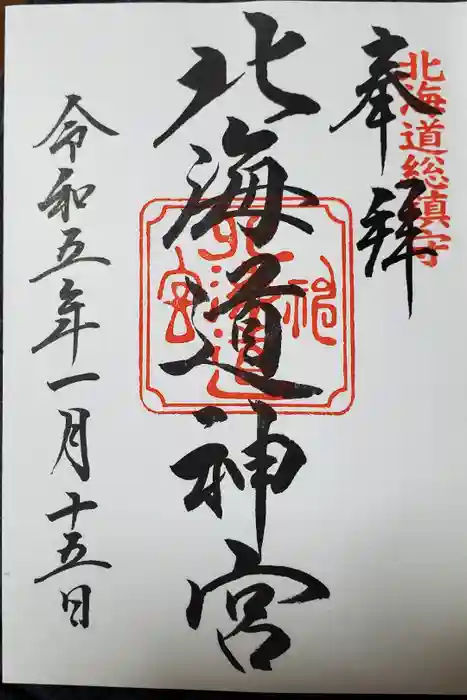 奉拝
北海道総鎮守
北海道神宮
北海道神宮
令和五年一月十五日